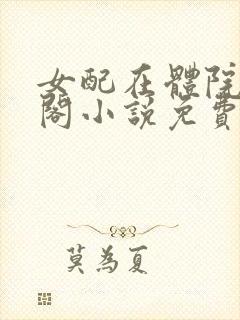 女配在體院
閣小説免費
莫為夏